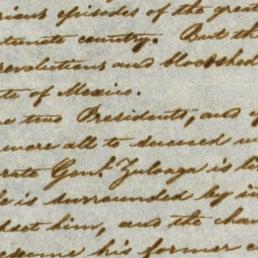 rious episodes of the great
tunate country. But th
revolutions and bloodshed
te of Mexico.
e two Presidents, and of
more all to succeed u
rate Genl. Zuloaga is li
e is surrounded by in
heet him, and the chan
esume his former c